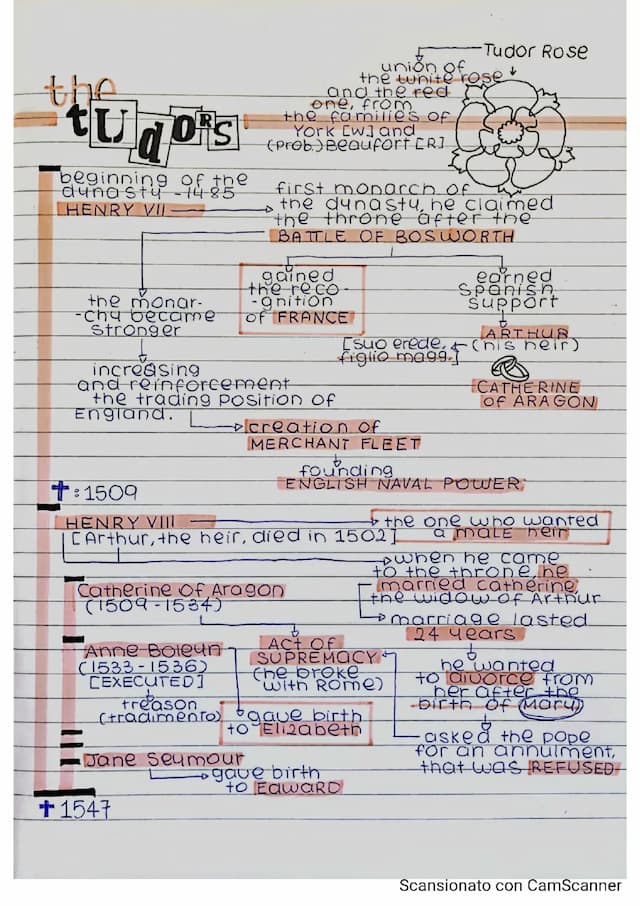 Tudor Rose
union of
the white rose
and the red
one, from
the families of
York [W] and
(prob.) Beaufort [R]
the
tUdoRS
beginning of the
dynasty - 1485
HENRY VII
first monarch of
the dynasty, he claimed
the throne after the
BATTLE OF BOSWORTH
the monar-
-chy became
stronger
gained
the reco-
-gnition
of FRANCE
earned
spanish
support
ARTHUR
(his heir)
[suo erede,
figlio magg.]
CATHERINE
OF ARAGON
increasing
and reinforcement
the trading position of
England.
creation of
MERCHANT FLEET
founding
ENGLISH NAVAL POWER.
✝: 1509
HENRY VIII
the one who wanted
a male heir
[Arthur, the heir, died in 1502]
when he came
to the throne, he
married catherine,
the widow of Arthur
marriage lasted
24 years
Catherine of Aragon
(1509-1534)
Anne Boleyn
(1533-1536)
[EXECUTED]
treason
(tradimento)
ACT OF
SUPREMACY
(he broke
with ROME)
gave birth
to Elizabeth
he wanted
to divorce from
her after the
birth of Mary
asked the pope
for an annulment,
that was REFUSED
Jane Seymour
gave birth
to Edward
✝ 1547
Scansionato con CamScanner